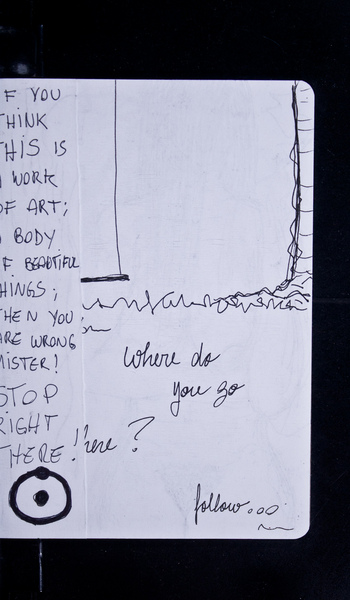 F YOU
THINK
THIS IS
WORK
OF ART;
BODY
F BEAUTIFUL
HINGS;
THEN YOU
ARE WRONG
MISTER!
STOP
RIGHT
THERE!
where do
you go
here ?
follow...